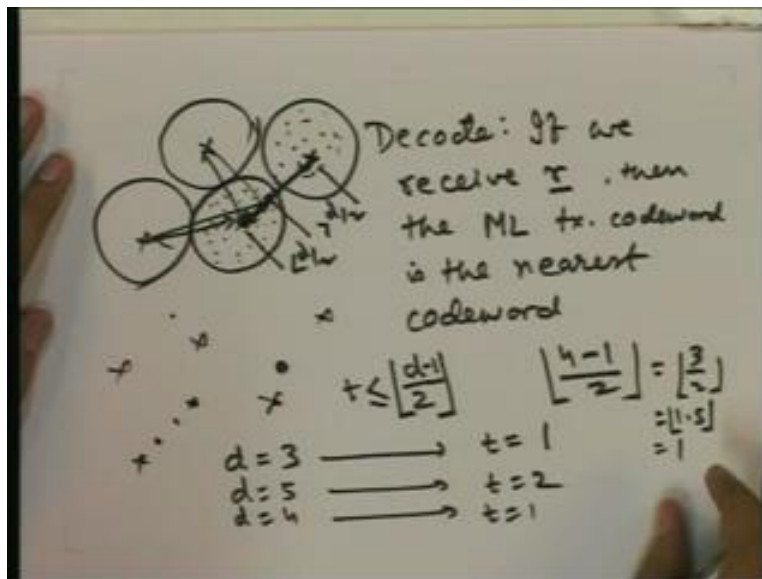 Decode: If we
receive r, then
the ML tx. codeword
is the nearest
codeword
d/2
d/2
t ≤ ⌊(d-1)/2⌋
⌊(4-1)/2⌋ = ⌊3/2⌋
= ⌊1.5⌋
= 1
d = 3 ⟶ t = 1
d = 5 ⟶ t = 2
d = 4 ⟶ t = 1